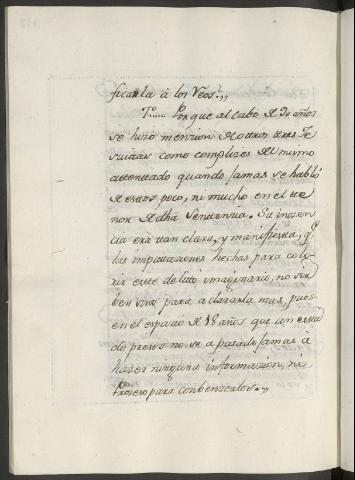 ficarla à los Reos.,,
7.º..... Porque al cabo de 20 años
se hizo mencion de otros tres Je
suitas como complizes del mismo
attentado quando jamas se habló
de estos poco, ni mucho en el te
nor de dha Sentenzia. Su inosen
cia era tan clara, y manifiesta, q.e
las imputasiones hechas para colo
rir este delito imaginario, no sir
ben sino para aclararla mas, pues
en el espacio de 18 años que an esta
do presos no se a pasado jamas a
hazer ninguna informasion, ni
Proseso para conbenzerlos.,,